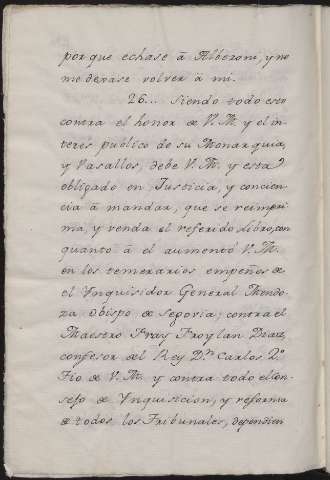 por que echase â Alberoni, y no
me dexase volver â mi.
26... Siendo todo esto
contra el honor de V. M. y el in-
terés publico de su Monarquia,
y Vasallos, debe V. M. y está
obligado en Justicia, y concien-
cia â mandar, que se reimpri-
ma, y venda el referido Libro, con
quanto â el aumentó V. M.
en los temerarios empeños de
el Ynquisidor General Mendo-
za Obispo de Segovia; contra el
Maestro Fray Froylan Diaz,
confesor del Rey Dn. Carlos 2.º
Tio de V. M. y contra todo el Con-
sejo de Ynquisicion, y reforma
de todos los Tribunales, dependien